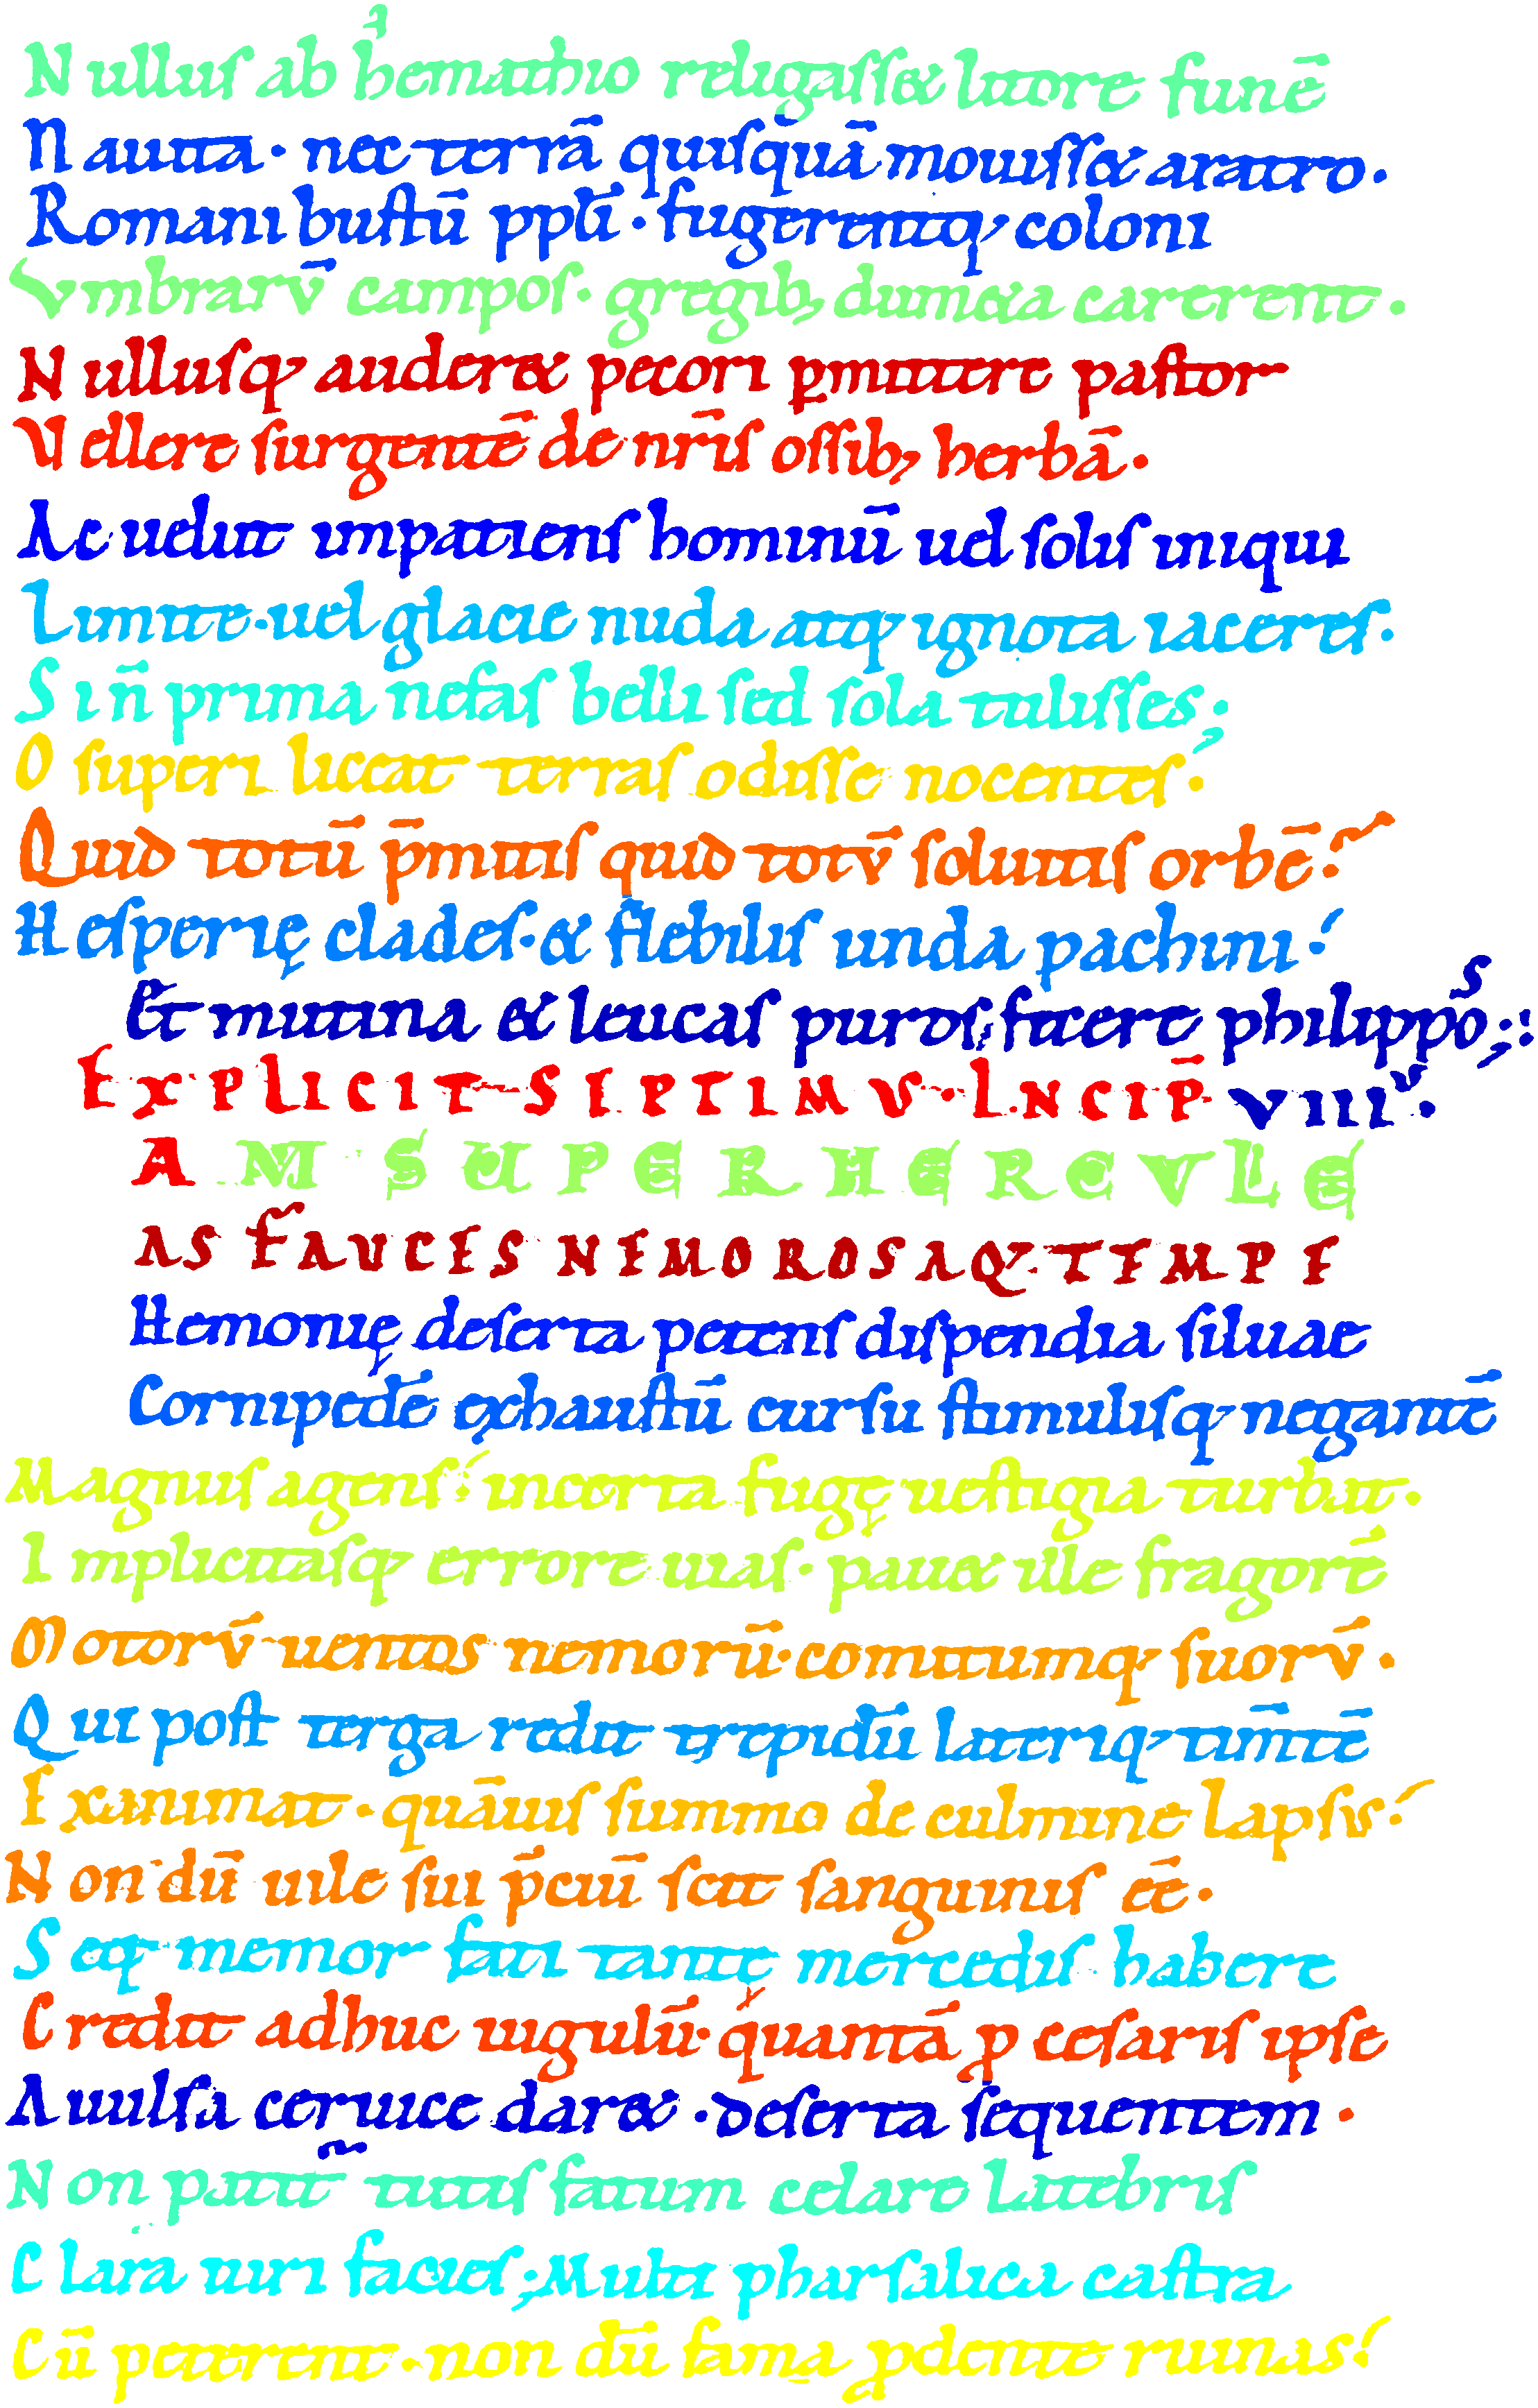 Nullus ab hemathio religass& litore funē
Nauita · nec terrā quisquā mouiss& aratro.
Romani bustū ppl̄i · fugerentq; coloni
Vmbrarv̄ campos · gregib; dumeta carerent.
Nullusq; auder& pecori pmittere pastor
Vellere surgentē de nr̄is ossib; herbā.
Ac uelut impatiens hominū uel solis iniqui
Limite · uel glacie nuda atq; ignota iaceres.
Si n̄ prima nefas belli sed sola tulisses;
O superi liceat terras odisse nocentes.
Quid totū p̄mitis quid totv̄ soluitis orbē?
Hesperię clades · & flebilis unda pachini?
Et mutina & leucas puros fecere philippos;:
EXPLICIT SEPTIMVS · INCIP̄ VIIIv.
AM SUPER HERCVLE
AS FAUCES NEMOROSAQ; TEMPE
Hemonię deserta petens dispendia siluae
Cornipedē exhaustū cursu stimulisq; negantē
Magnus agens? incerta fugę uestigia turbat.
Implicitasq; errore uias · pau& ille fragorē
Motorv̄ uentos nemorū · comitumq; suorv̄.
Qui post terga redit trepidū lateriq; tim̄tē
Exanimat · quāuis summo de culmine lapsis?
Nondū uile sui p̄ciū scit sanguinis eē.
Seq; memor fati tantę mercedis habere
Credit adhuc iugulū · quantā p cesaris ipse
Auulsa ceruice dar& · deserta sequentem.
Non patit̃ tutis fatum celare latebris
Clara uiri facies; Multi pharsalica castra
Cū peterent · non dū fama pdente ruinas?